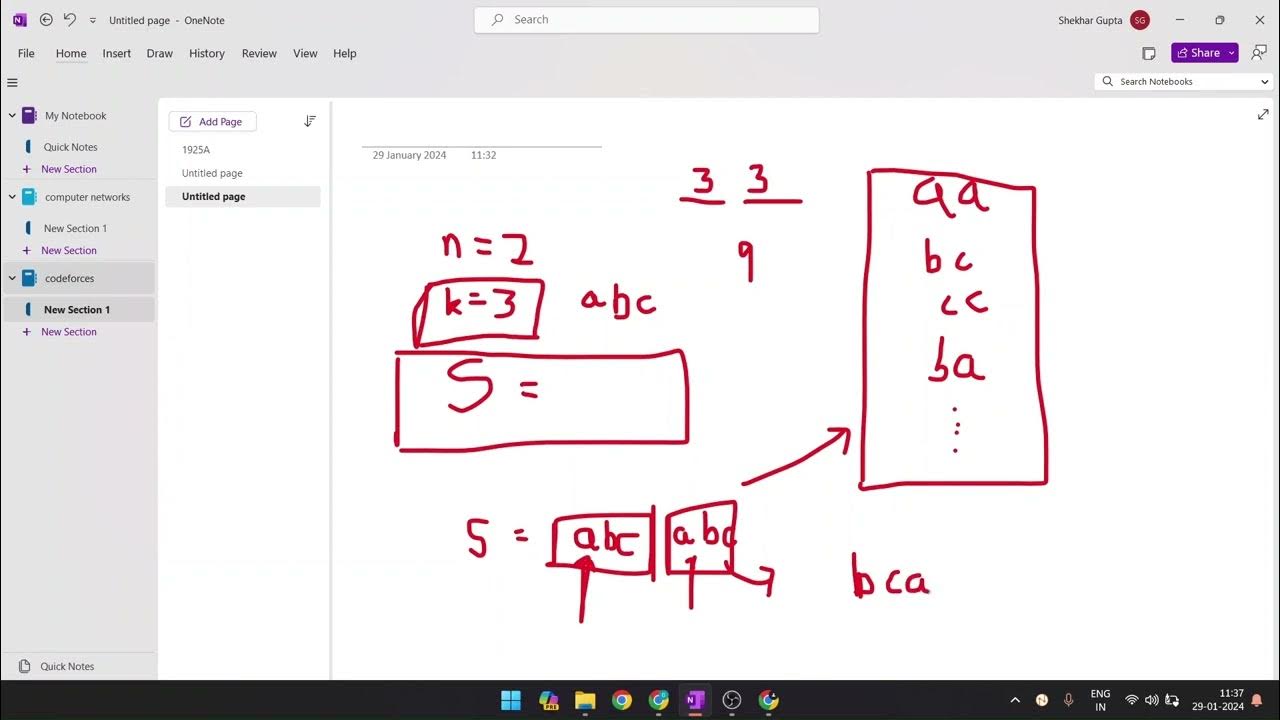 Untitled page - OneNote
Search
Shekhar Gupta SG
File Home Insert Draw History Review View Help
Share
Search Notebooks
My Notebook
Quick Notes
+ New Section
computer networks
New Section 1
+ New Section
codeforces
New Section 1
+ New Section
Quick Notes
Add Page
1925A
Untitled page
Untitled page
29 January 2024 11:32
3 3
9
n = 2
k = 3 abc
S =
S = abc abc
aa
bc
cc
ba
bca
PRE
ENG
IN
11:37
29-01-2024